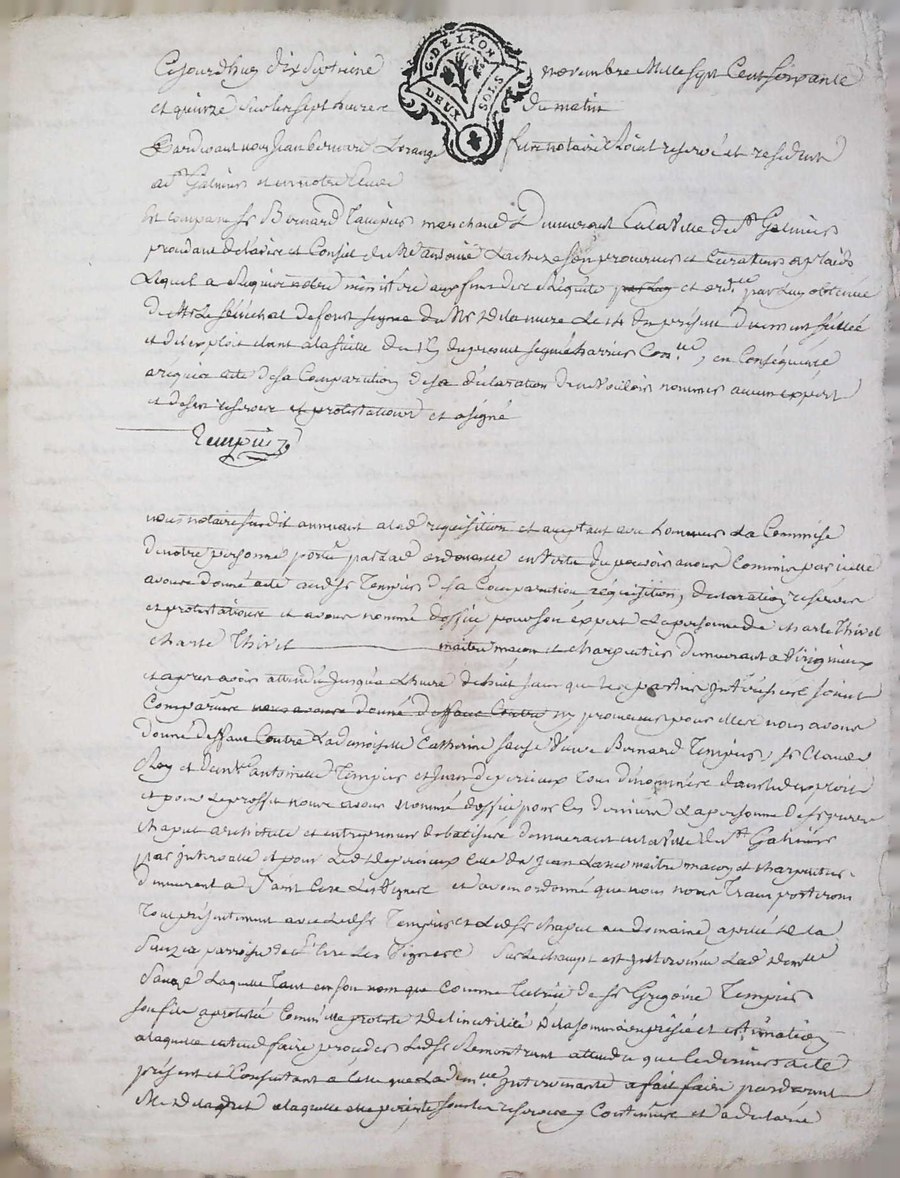 G. DE LYON
DEUX SOLS
Cejourdhuy dix septieme novembre Mille sept Cent soixante
et quinze sur les sept heures du matin
Pardevant nous Jean Bernard notaire Roial reservé et residant
a St Galmier et en notre etude
Est comparu Sr Bernard Tempier marchand Demeurant en la Ville de St Galmier
procedant de l'avis et Conseil de Me antoine son procureur et Curateur a plaids
Lequel a Requis notre ministere aux fins de la Requete par luy et ordce par luy obtenue
de Mr Le sénéchal de forest signée de Mr Delamure Le 14 du présent Duement scellée
et de l'exploit etant a la suitte du 15 du present signé Con.te, en Conséquence
a requis acte de sa Comparution de sa déclaration de ne Vouloir nommer aucun expert
et de ses reserves et protestations et a signé
Tempier
nous notaire susdit annuant a lad requisition et acceptant avec honneur La Commise
De notre personne portée par lad ordonance, en Vertu du pouvoir a nous Commis par icelle
avons donné acte audt Sr Tempier de sa Comparution, réquisition, declaration, reserves
et protestations et avons nommé d'office pour son expert La personne de charle Thivel
charle Thivel maitre maçon et charpentier demeurant a Virigneux
et apres avoir attendu jusqu'a L'heure de huit sans que les parties intéressées soient
Comparues nous avons donné deffaut Contre ny procureur pour elles nous avons
Donné deffaut Contre La demoiselle Catherine Sauzé Veuve Bernard Tempier, Sr Claude
Roy et demlle antoinette Tempier et Jean Deperieux tous dénommés dans led exploit
et pour Le proffit nous avons Nommé d'office pour les derniers La personne de Sr pierre
chaput architecte et entrepreneur de batisses demeurant en la Ville de St Galmier
par intervalle et pour Led Deperieux celle de Jean maitre maçon et charpentier
demeurant a Saint Cire Les Vignes et avons ordonné que nous nous transporterons
tout présentement avec Ledt Sr Tempier et Ledt Sr chaput au Domaine apellé de la
Sauzéa parroisse de St Cire Les Vignes Sur le champ est intervenue Lad Demlle
Sauzé Laquelle tant en son nom que Comme tutrice de Sr Grégoire Tempier
son fils a protesté Comme elle proteste de l'inutilité de la somme en prisée et estimation
a laquelle entend faire proceder Ledt Sr Remontrant attendu que le dernier a été
présent et Consentant a celle que La demlle intervenante a fait faire pardevant
Me a laquelle elle persiste sous les reserves y Contenues et a declaré